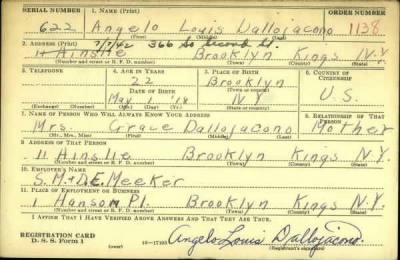 SERIAL NUMBER 1. NAME (Print) ORDER NUMBER
622 Angelo Louis Dallojacono 1138
(First) (Middle) (Last)
2. ADDRESS (Print) 7/7/42 366 So Second St.
11 Ainslie Brooklyn Kings N.Y.
(Number and street or R. F. D. number) (Town) (County) (State)
3. TELEPHONE 4. AGE IN YEARS 5. PLACE OF BIRTH 6. COUNTRY OF CITIZENSHIP
22 Brooklyn
DATE OF BIRTH (Town or county)
May '18 N.Y. U.S.
(Exchange) (Number) (Mo.) (Day) (Yr.) (State or country)
7. NAME OF PERSON WHO WILL ALWAYS KNOW YOUR ADDRESS 8. RELATIONSHIP OF THAT PERSON
Mrs. Grace Dallojacono Mother
(Mr., Mrs., Miss) (First) (Middle) (Last)
9. ADDRESS OF THAT PERSON
11 Ainslie Brooklyn Kings N.Y.
(Number and street or R. F. D. number) (Town) (County) (State)
10. EMPLOYER'S NAME
S.M. & D.E. Meeker
11. PLACE OF EMPLOYMENT OR BUSINESS
1 Hanson Pl. Brooklyn Kings N.Y.
(Number and street or R. F. D. number) (Town) (County) (State)
I AFFIRM THAT I HAVE VERIFIED ABOVE ANSWERS AND THAT THEY ARE TRUE.
REGISTRATION CARD
D. S. S. Form 1 (over) 16—17105 Angelo Louis Dallojacono
(Registrant's signature)